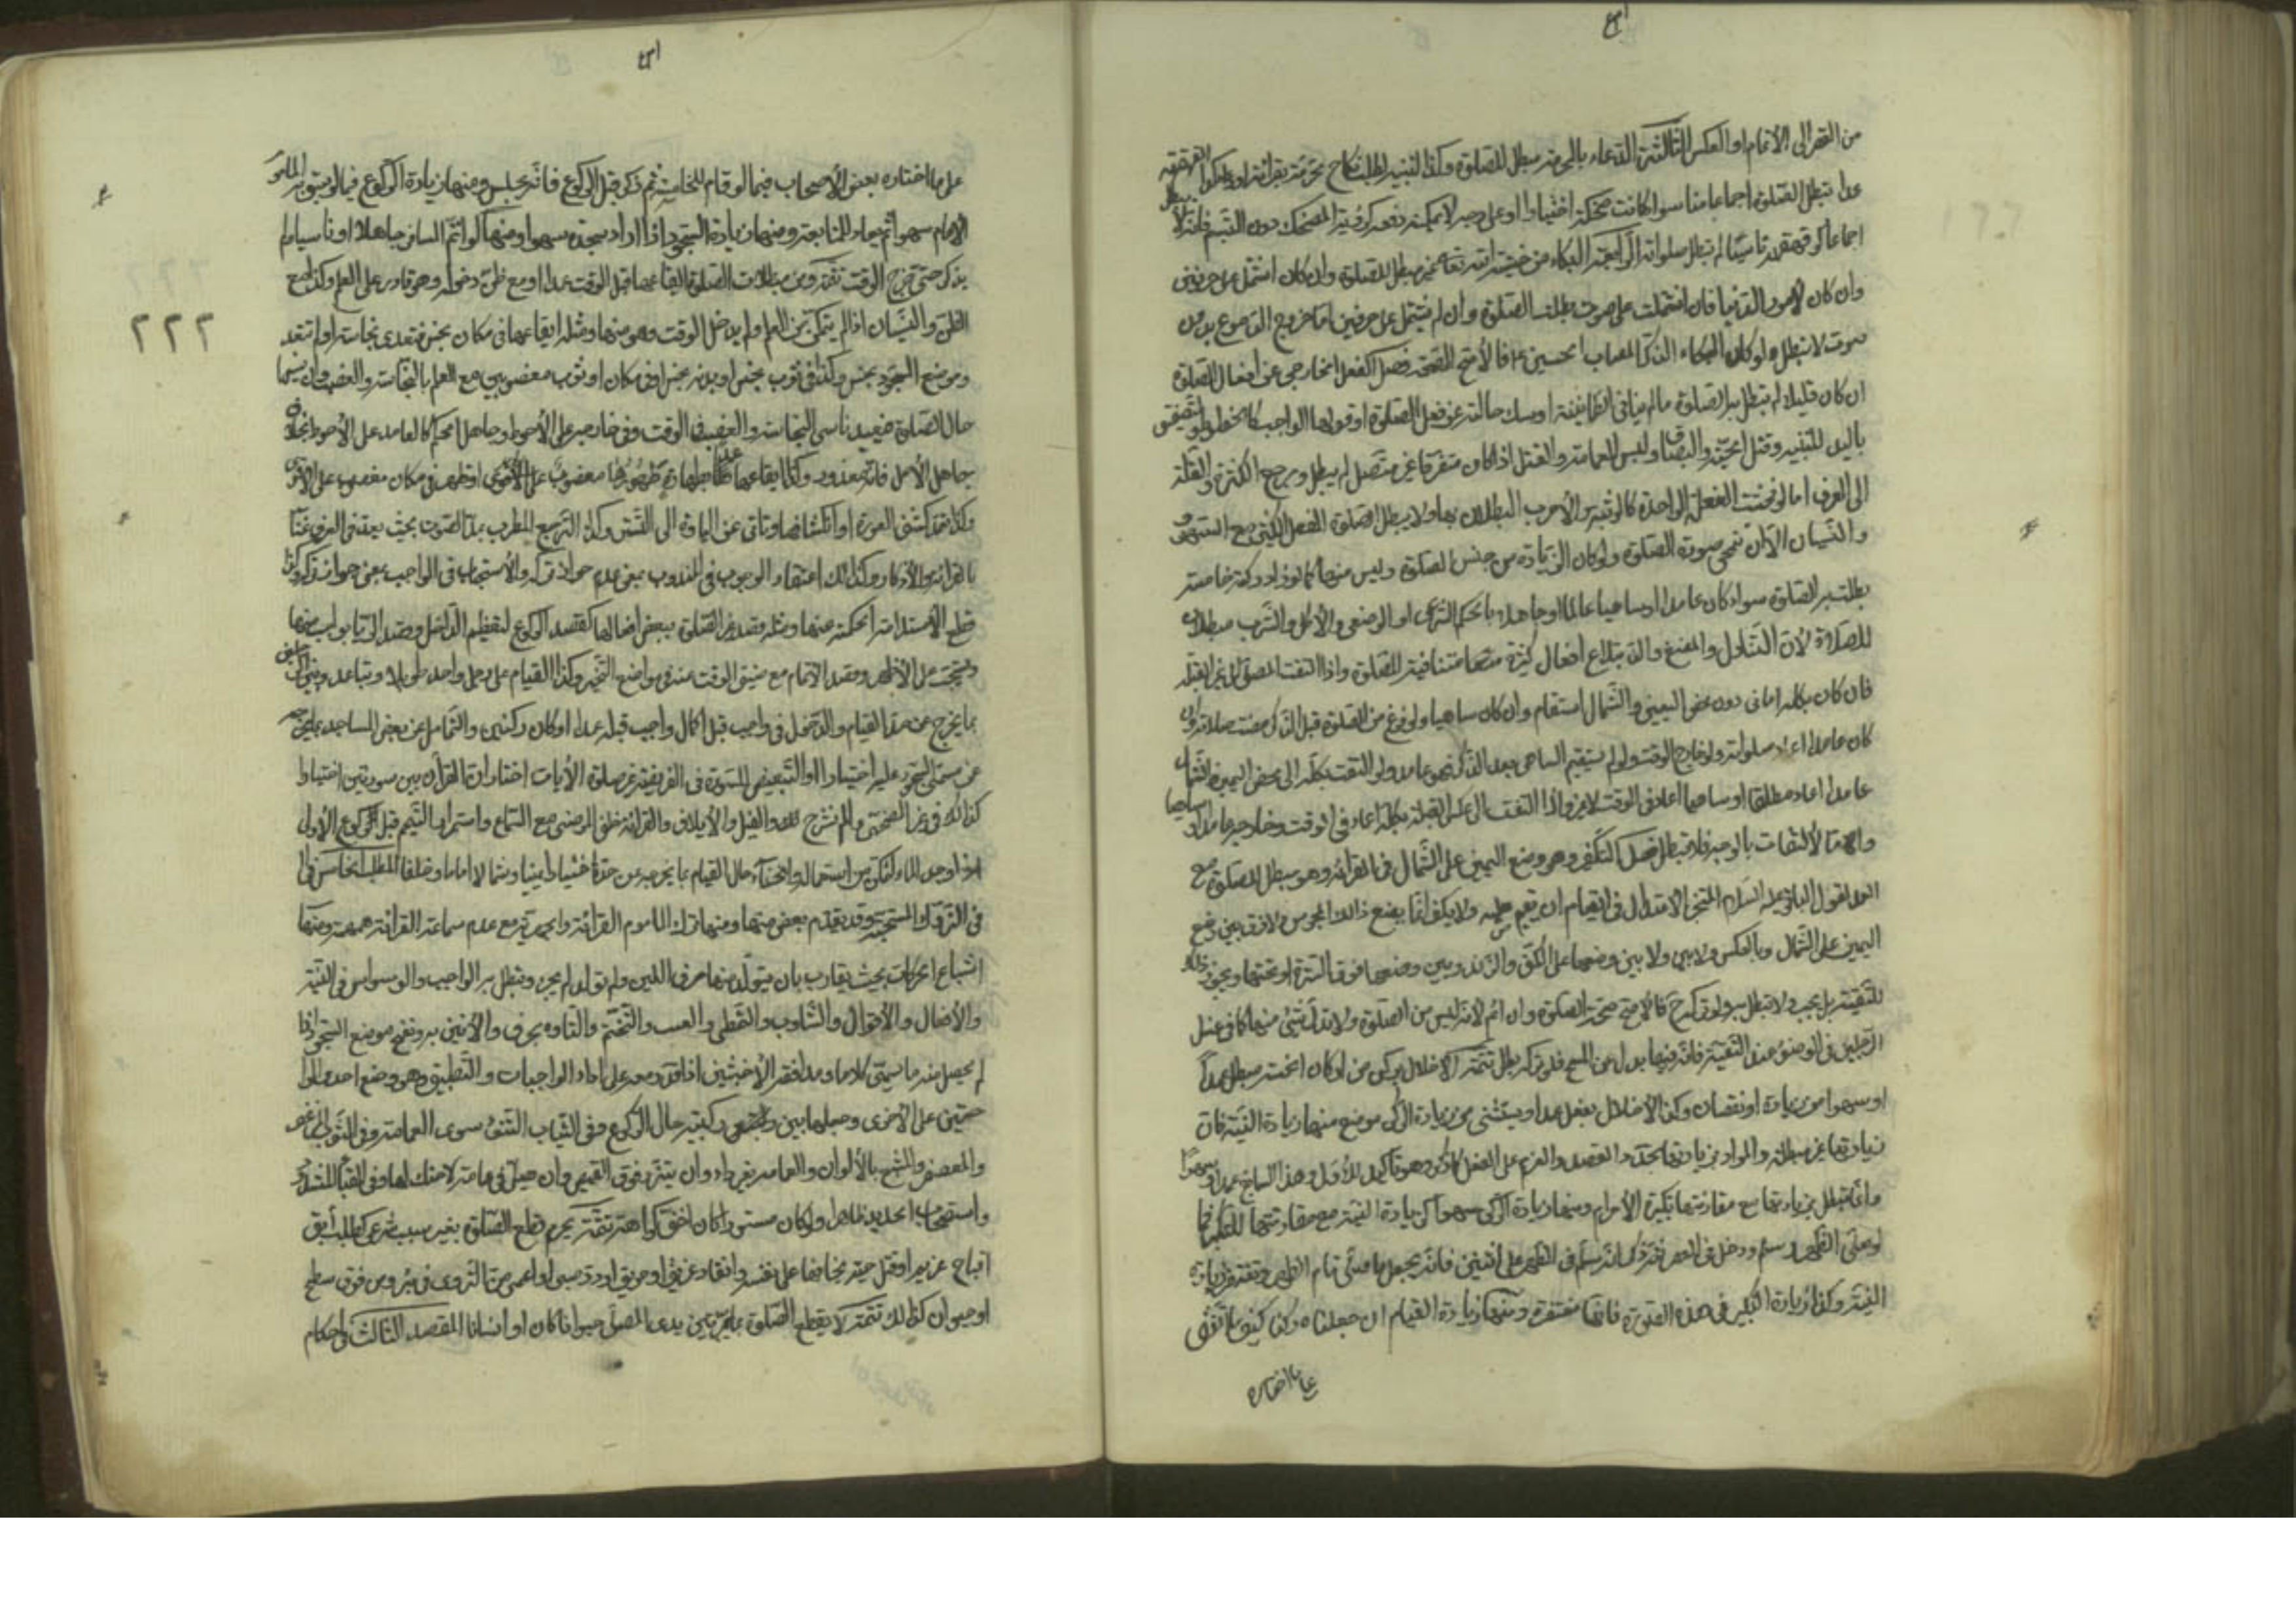 من القصر الى الاتمام او العكس الثالثة الدعاء بالمحرم مبطل للصلوة وكذا التنبيه لطلب نكاح محرمة بقرائة او
عدا تبطل الصلوة اجماعا منا سواء كانت ضحكة اختيارا او على وجه لا يمكنه دفعه كرؤية المضحك دون التبسم فانه لا يبطل
اجماعا ولو قهقه ناسيا لم تبطل صلواته الرابعة البكاء من خشية الله تعالى غير مبطل للصلوة وان كان اشتمل على حرفين
وان كان لامور الدنيا فان اشتملت على صوت بطلت الصلوة وان لم يشتمل على حرفين اما خروج الدموع بدون
صوت لا تبطل ولو كان البكاء لذكر المصاب الحسين فالاصح الصحة فصل الفعل الخارجي عن أفعال الصلوة
ان كان قليلا لم تبطل به الصلوة مالم ينافي الطمانينة او مسك حالته عن فعل الصلوة او قولها الواجب كالخطو والتصفيق
باليد للتنبيه وقتل الحية والبصاق ولبس العمامة والفتل اذا كان متفرقا غير متصل لم يبطل ويرجع الكثرة والقلة
الى العرف اما لو فحشت الفعلة الواحدة كالوثبة الأحرب البطلان بها ولا يبطل الصلوة الفعل الكثير مع السهو
والنسيان الا ان تمحى صورة الصلوة ولو كان الزيادة من جنس الصلوة وليس منها كما لو زاد ركعة خامسة
بطلت به الصلوة سواء كان عامدا او ساهيا عالما او جاهلا بالحكم الشرعي او الوضعي والأكل والشرب مبطلان
للصلاة لأن التناول والمضغ والابتلاع أفعال كثيرة منها متنافية للصلوة واذا التفت المصلى الى غير القبلة
فان كان بكله اماني دون محض اليمين والشمال استقام وان كان ساهيا ولو فرغ من الصلوة قبل الذكر مضت صلاته وان
كان عامدا اعاد صلواته ولو خارج الوقت ولو لم يستقيم الساهي بعد الذكر فهو عامد ولو التفت بكله الى محض اليمين والشمال
عامدا اعاد مطلقا او ساهيا أعاد في الوقت لا غير واذا التفت الى عكس القبلة بكله اعاد في الوقت وخارجه عامدا او ساهيا
واما الألتفات بالوجه فلا تبطل فصل التكفير وهو وضع اليمين على الشمال في القرائة وهو مبطل للصلوة مع
العمد لقول الباقر عليه السلام المتنحى الاعتدال في القيام ان يقيم صلبه ولا يكفر انما يصنع ذالك المجوس ولا فرق بين وضع
اليمين على الشمال وبالعكس ولا بين وضعها على الكف والزند وبين وضعها فوق السرة او تحتها ويجوز ذلك
للتقية بل يجب ولا تبطل به ولو تركه ح فالاصح صحة الصلوة وان اثم لأنه ليس من الصلوة ولا بدل شئ منها كما في غسل
الرجلين في الوضوء عند التقية فانه فيها بدل من المسح فلو تركه بطل تتمة الاخلال بركن من اركان الخمسة مبطل عمدا
او سهوا من زيادة او نقصان وكذا الأخلال بفعل عمدا ويستثنى من زيادة الركن مواضع منها زيادة النية فان
زيادتها غير مبطلة والمراد بزيادتها تجدد القصد والعزم على الفعل فانه وهو تأكيد للأول وهذا السابع عمدا او سهوا
وانما تبطل بزيادتها مع مقارنتها بتكبيرة الأحرام ومنها زيادة الركن سهوا كزيادة النية مع مقارنتها للتكبير فيما
لو صلى الظهر وسلم ودخل في العصر ثم ذكر انه سلم في الظهر على اثنتين فانه يجعل ما صلى تمام الظهر وتغتفر زيادة
النية وكذا زيادة التكبير في هذه الصورة فانها مغتفرة ومنها زيادة القيام ان جعلناه ركنا كيف اتفق
على ما اختاره
على ما اختاره بعض الأصحاب فيما لو قام للخامسة ثم ذكر قبل الركوع فانه يجلس ومنها زيادة الركوع فيما لو سبق به المأموم
الامام سهوا ثم يعاد للمتابعة ومنها زيادة السجود اذا اراد سجدة سهوا ومنها لو اتم المسافر جاهلا او ناسيا ولم
يذكر حتى خرج الوقت تتمة ومن مبطلات الصلوة ايقاعها قبل الوقت عمدا او مع ظن دخوله وهو قادر على العلم وكذا مع
الظن والنسيان اذا لم يتمكن من العلم ولم يدخل الوقت وهو منها ومثله ايقاعها في مكان نجس متعدى نجاسته او لم تتعد
وموضع السجود نجس وكذا في ثوب نجس او بدن نجس او في مكان او ثوب مغصوبين مع العلم بالنجاسة والغصب وان نسيها
حال الصلوة فيعيد ناسي النجاسة والغصب في الوقت وفي خارجه على الأحوط وجاهل الحكم كالعامد على الأحوط بخلاف
جاهل الأصل فانه معذور وكذا ايقاعها بطهارة مغصوب على الأقوى او طهر في مكان مغصوب على الأقوى
وكذا تعمد كشف العورة او انكشافها وتاتى عن المادة الى الستر وكذا الترجيع المطرب بمد الصوت بحيث يعد في العرف غنا
بالقرائة والأذكار وكذالك اعتقاد الوجوب في المندوب بمعنى عدم جواز تركه والأستحباب في الواجب بمعنى جواز تركه وكذا
قطع الأستدامة الحكمية منها ومثله قصد غير الصلوة ببعض افعالها كقصد الركوع لتعظيم الداخل وقصد الى
على الأظهر وقصد الاتمام مع ضيق الوقت عنه في مواضع التخيير وكذا القيام على رجل واحد طويلا وتباعد
بما يخرج عن حد القيام والدخول في واجب قبل اكمال واجب قبله عمدا او كان ركنين والتمايل عن بعض المساجد بما يخرج
عن مسمى السجود عليه اختيارا والتبعيض للسورة في الفريضة غير صلوة الأيات اختيارا والقرآن بين سورتين اختيارا
كذالك في غير الضحى والم نشرح لك والفيل والأيلاف والقرائة منطق المرضى مع السماع واستمرار التيمم قبل الركوع الأول
اذا وجد الماء لتمكن من استعماله والانحناء حال القيام بما يخرجه عن حده اختيارا يمينا وشمالا اماما وخلفا المطلب الخامس في
في التروك المستحبة وقد يقدم بعض منها ومنها ترك المأموم القرائة والجهرية مع عدم سماعة القرائة همهمة ومنها
اشباع الحركات بحيث يقارب بان يتولد منها حرف اللين ولو تولد لم يجز وتبطل به الواجب والوسواس في النية
والأفعال والأقوال والتثاوب والتمطى والعبث والتنخم والتاوه بحرف والأنين به ونفخ موضع السجود اذا
لم يحصل منه ما يسمى كلاما ومدافعة الأخبثين اذا قدر معه على اداء الواجبات والتطبيق وهو وضع احدى الراحتين
على الأخرى وجعلها بين ركبتيه حال الركوع وفي الثياب السود سوى العمامة وفي الثوب
والمعصفر والمشبع بالألوان والعمامة بغير رداء وان يتزر فوق القميص وان صلى في عمامة لا حنك لها وفي القبا المشدود
واستصحاب الحديد ظاهرا ولو كان مستورا كان اخف كراهة تتمة يحرم قطع الصلوة بغير سبب شرعي كطلب آبق
اتباع غريم او قتل حية يخافها على نفس وانقاد غريق او حريق او ردء صبى او اعمى من التردى في بئر ومن فوق سطح
او حيوان كذالك تتمة لا يقطع الصلوة مما يمر بين يدى المصلى حيوانا كان او انسانا المقصد الثالث في احكام
٢٢٢